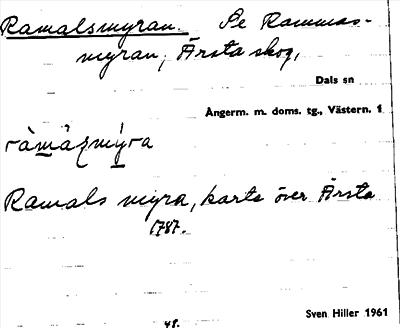 Ramalsmyran. Se Rammas-
myran, Ärsta skog,
Dals sn
Ångerm. m. doms. tg., Västern. 1
Ramals myra, karta över Ärsta
1787.
48.
Sven Hiller 1961